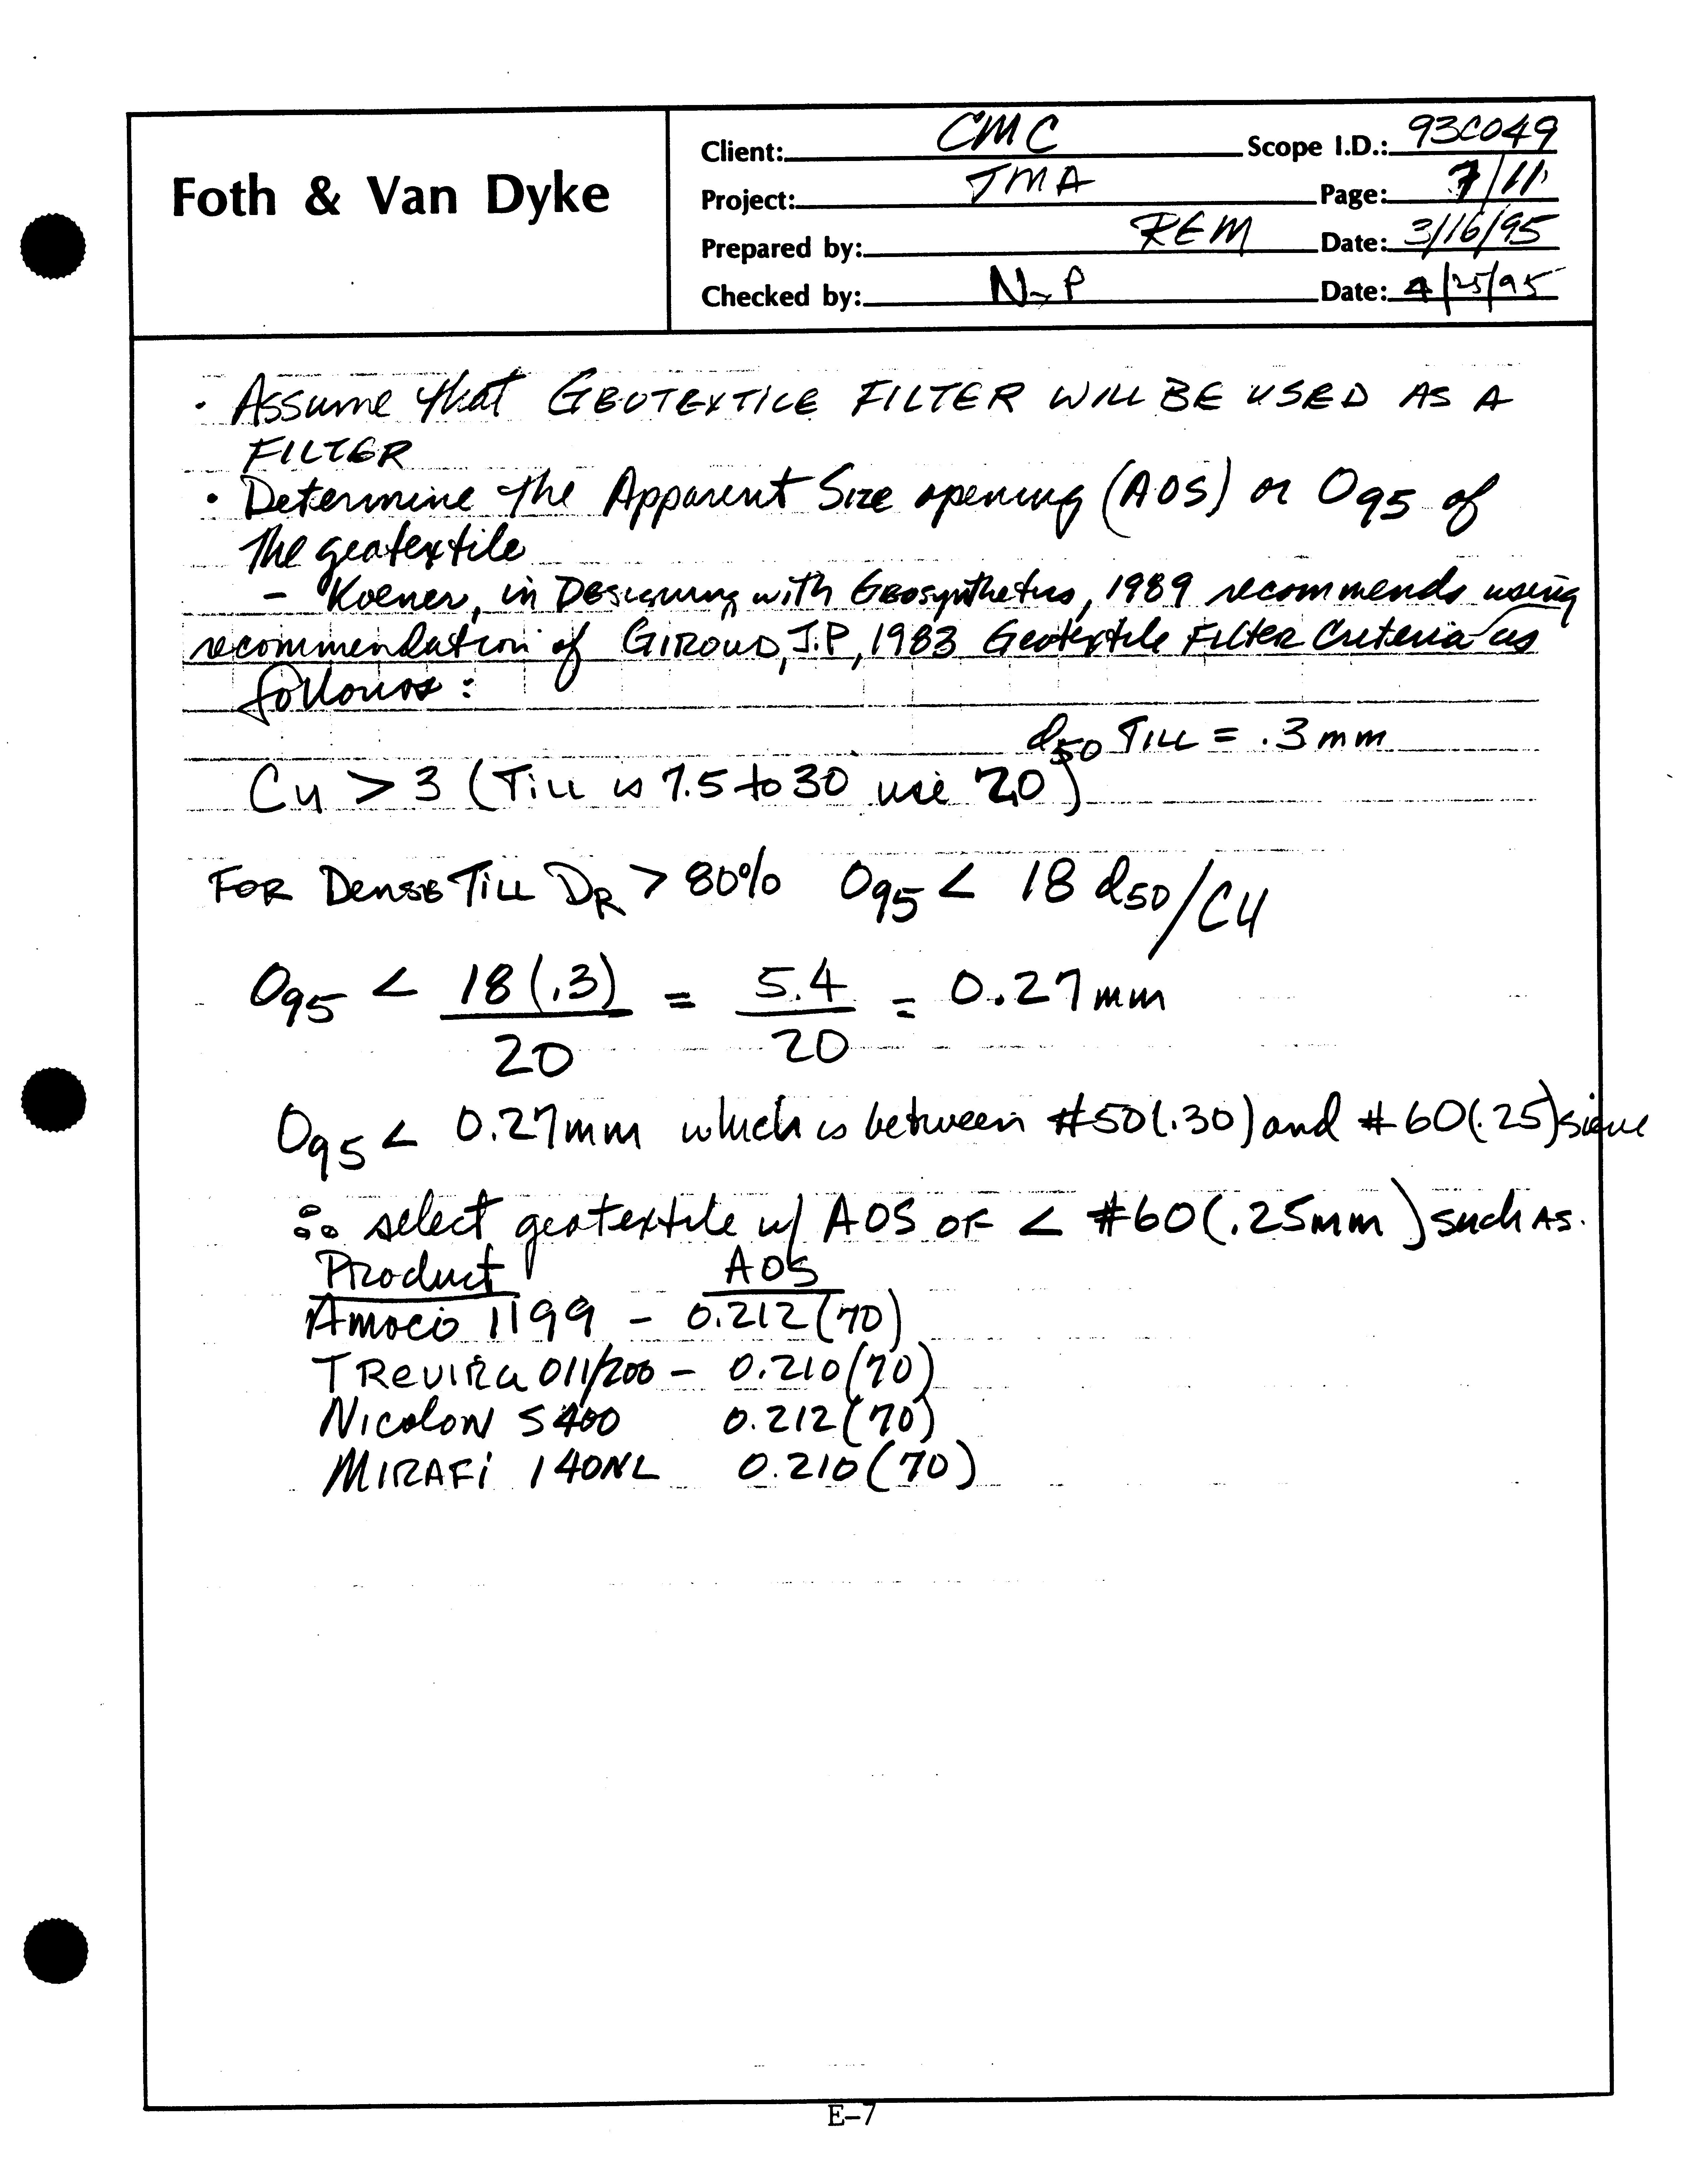 Foth & Van Dyke
Client: CMC Scope I.D.: 93C049
Project: TMA Page: 7/11
Prepared by: REM Date: 3/16/95
Checked by: Date: 4/25/95
· Assume that GEOTEXTILE FILTER WILL BE USED AS A
FILTER
• Determine the Apparent Size opening (AOS) or O95 of
the geotextile
– Koener, in Designing with Geosynthetics, 1989 recommends using
recommendation of GIROUD, J.P, 1983 Geotextile Filter Criteria as
follows:
d50 TILL = .3mm
Cu > 3 (Till is 7.5 to 30 use 20)
FOR Dense Till DR > 80% O95 < 18 d50/Cu
O95 < 18(.3)/20 = 5.4/20 = 0.27mm
O95 < 0.27mm which is between #50(.30) and #60(.25) sieve
∴ select geotextile w/ AOS OF < #60(.25mm) such AS.
Product AOS
Amoco 1199 – 0.212(70)
TRevira 011/200 – 0.210(70)
Nicolon S400 0.212(70)
MIRAFi 140NL 0.210(70)
E-7